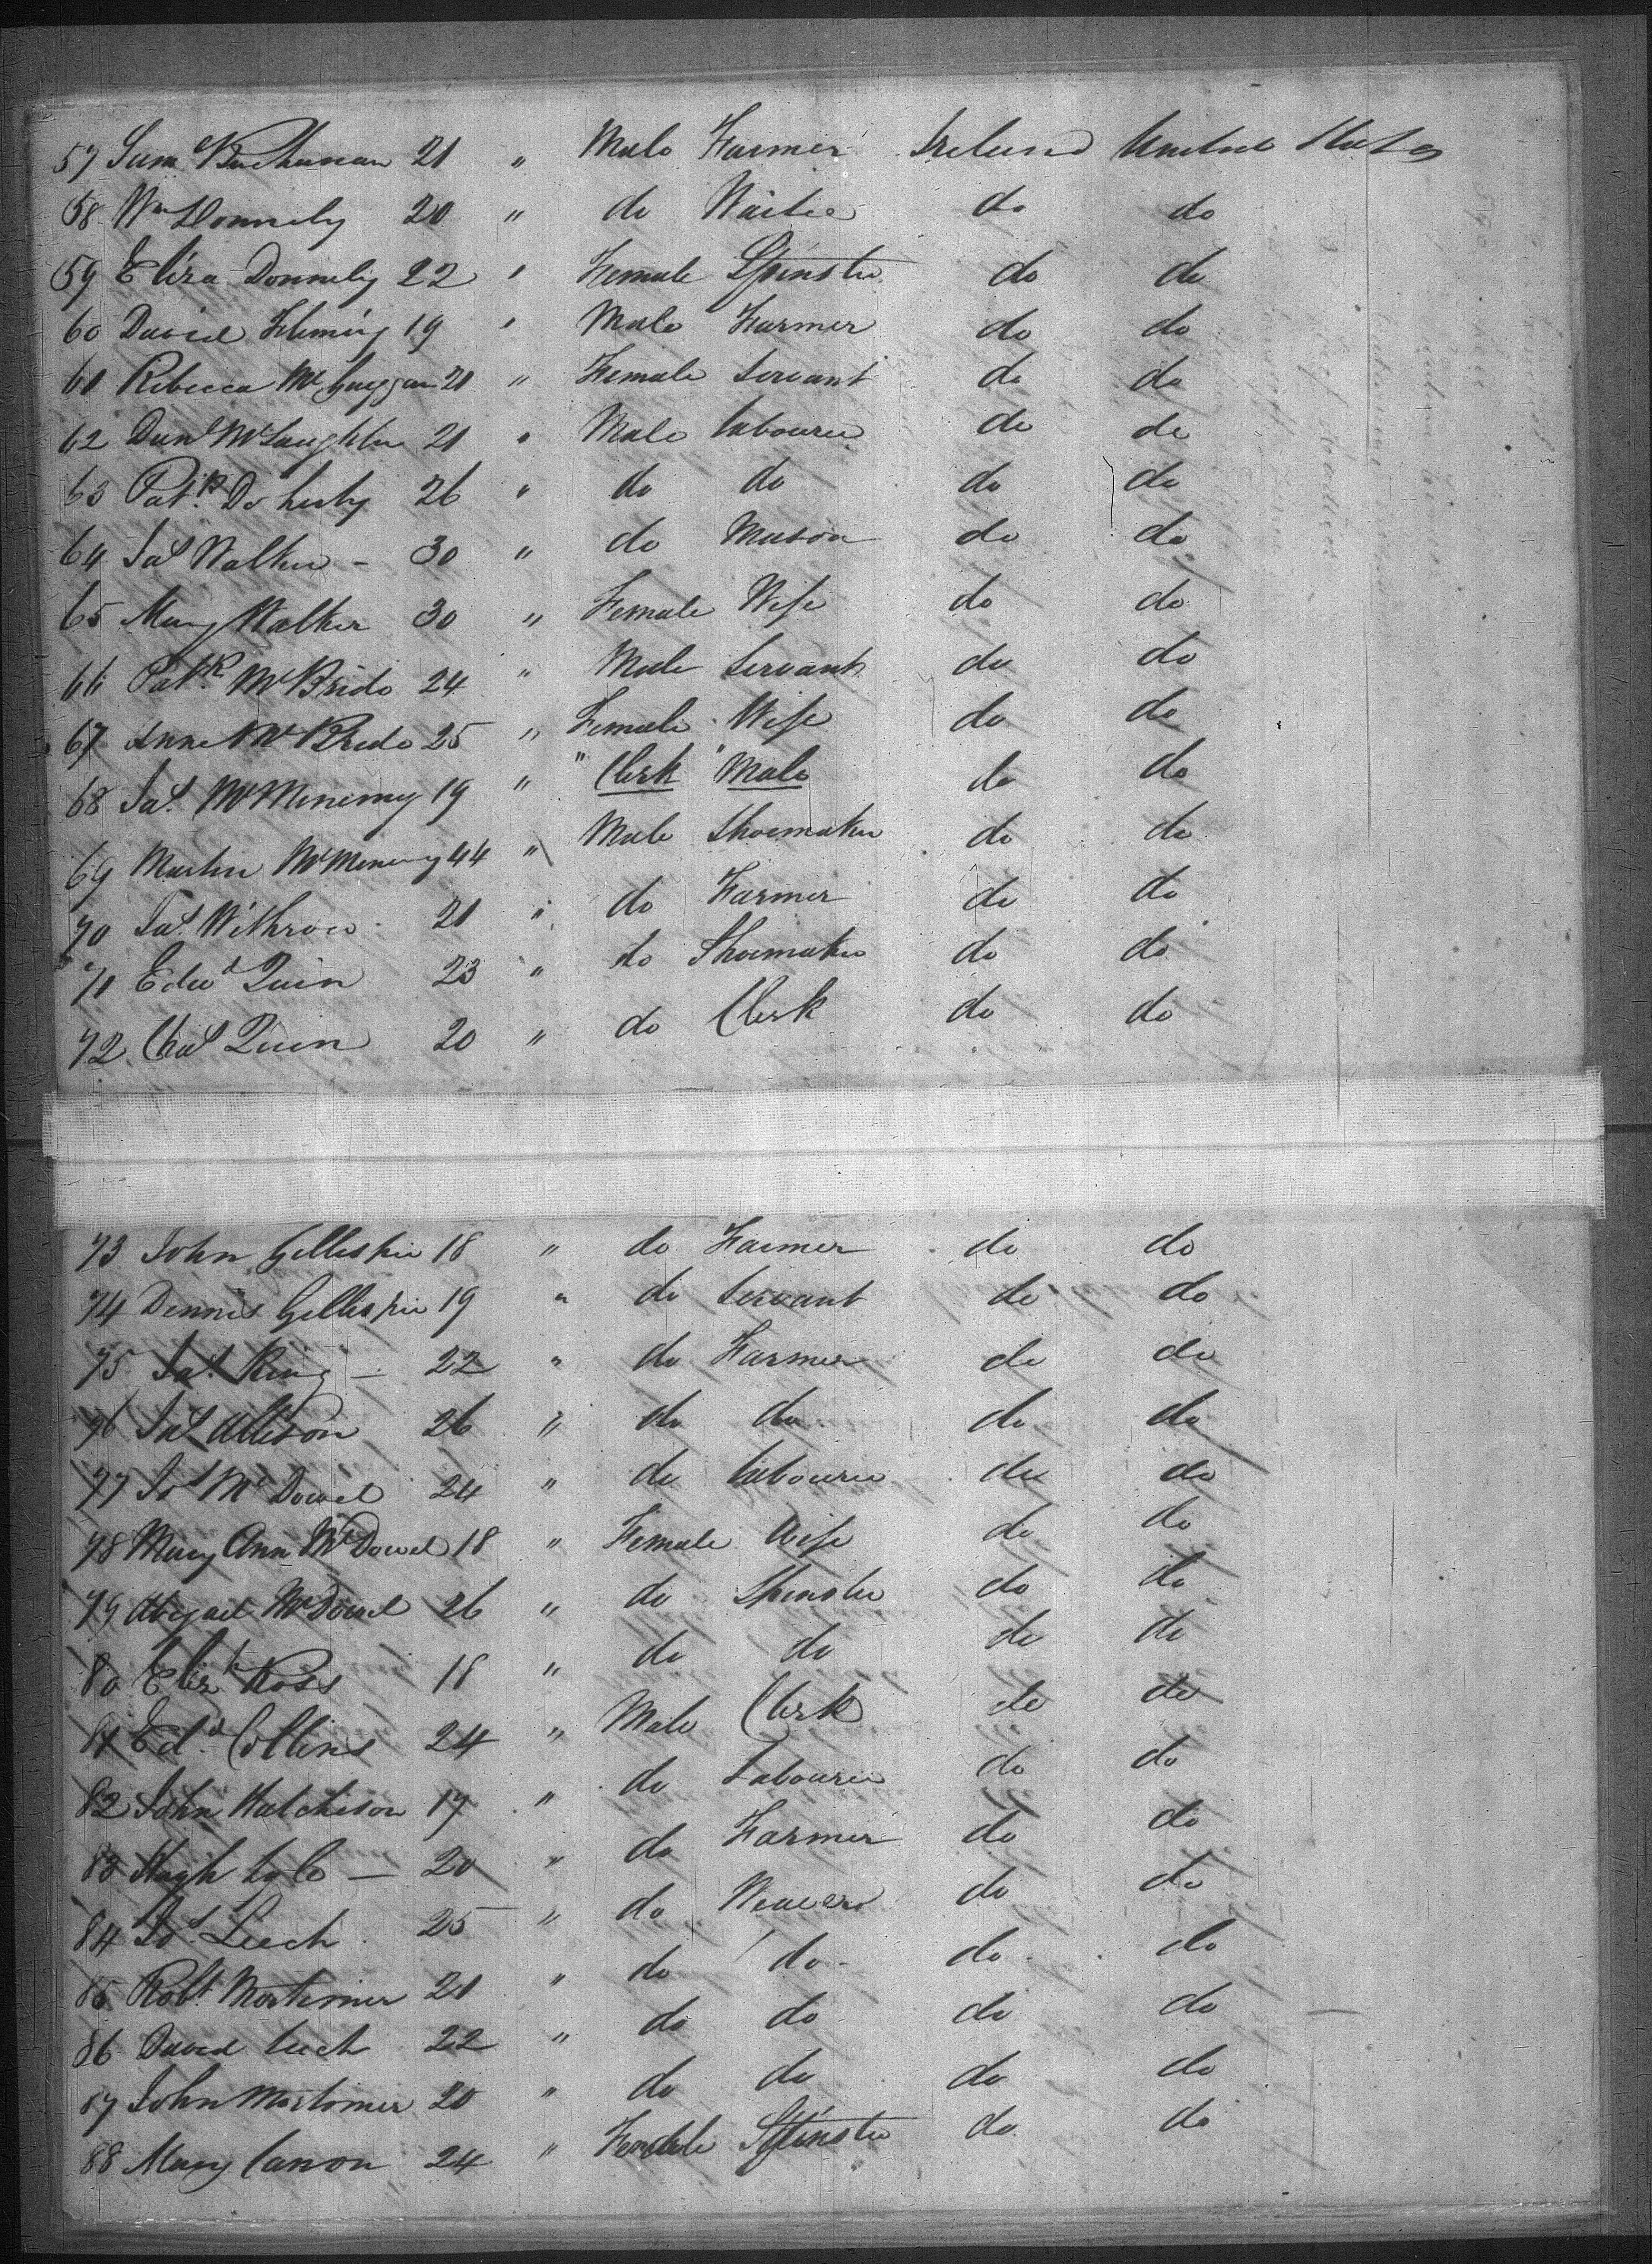 57 Saml Buchanan 21 " Male Farmer Ireland United States
58 Wm Donnely 20 " do Waiter do do
59 Eliza Donnely 22 " Female Spinster do do
60 David Fleming 19 " Male Farmer do do
61 Rebecca McGuiggan 21 " Female Servant do do
62 Danl McLaughlin 21 " Male labourer do do
63 Patk Doherty 26 " do do do do
64 Jas Walker - 30 " do Mason do do
65 Mary Walker 30 " Female Wife do do
66 Patk McBride 24 " Male Servant do do
67 Anne McBride 25 " Female Wife do do
68 Jas McMenemy 19 " " Clerk " Male do do
69 Martin McMenemy 44 " Male Shoemaker do do
70 Jas Withrow - 21 " do Farmer do do
71 Edwd Quin 23 " do Shoemaker do do
72 Chas Quin 20 " do Clerk do do
73 John Gillespie 18 " do Farmer do do
74 Dennis Gillespie 19 " do Servant do do
75 Jas King - 22 " do Farmer do do
76 Jas Allison 26 " do do do do
77 Jos McDowel 24 " do labourer do do
78 Mary Ann McDowel 18 " Female Wife do do
79 Abigael McDowel 26 " do Spinster do do
80 Elizh Ross 18 " do do do do
81 Edd Collins 24 " Male Clerk do do
82 John Hutcheson 17 " do Labourer do do
83 Hugh Lyle - 20 " do Farmer do do
84 Jos Leech 25 " do Weaver do do
85 Robt Mortimer 21 " do do do do
86 David Leech 22 " do do do do
87 John Mortimer 20 " do do do do
88 Mary Canon 24 " Female Spinster do do